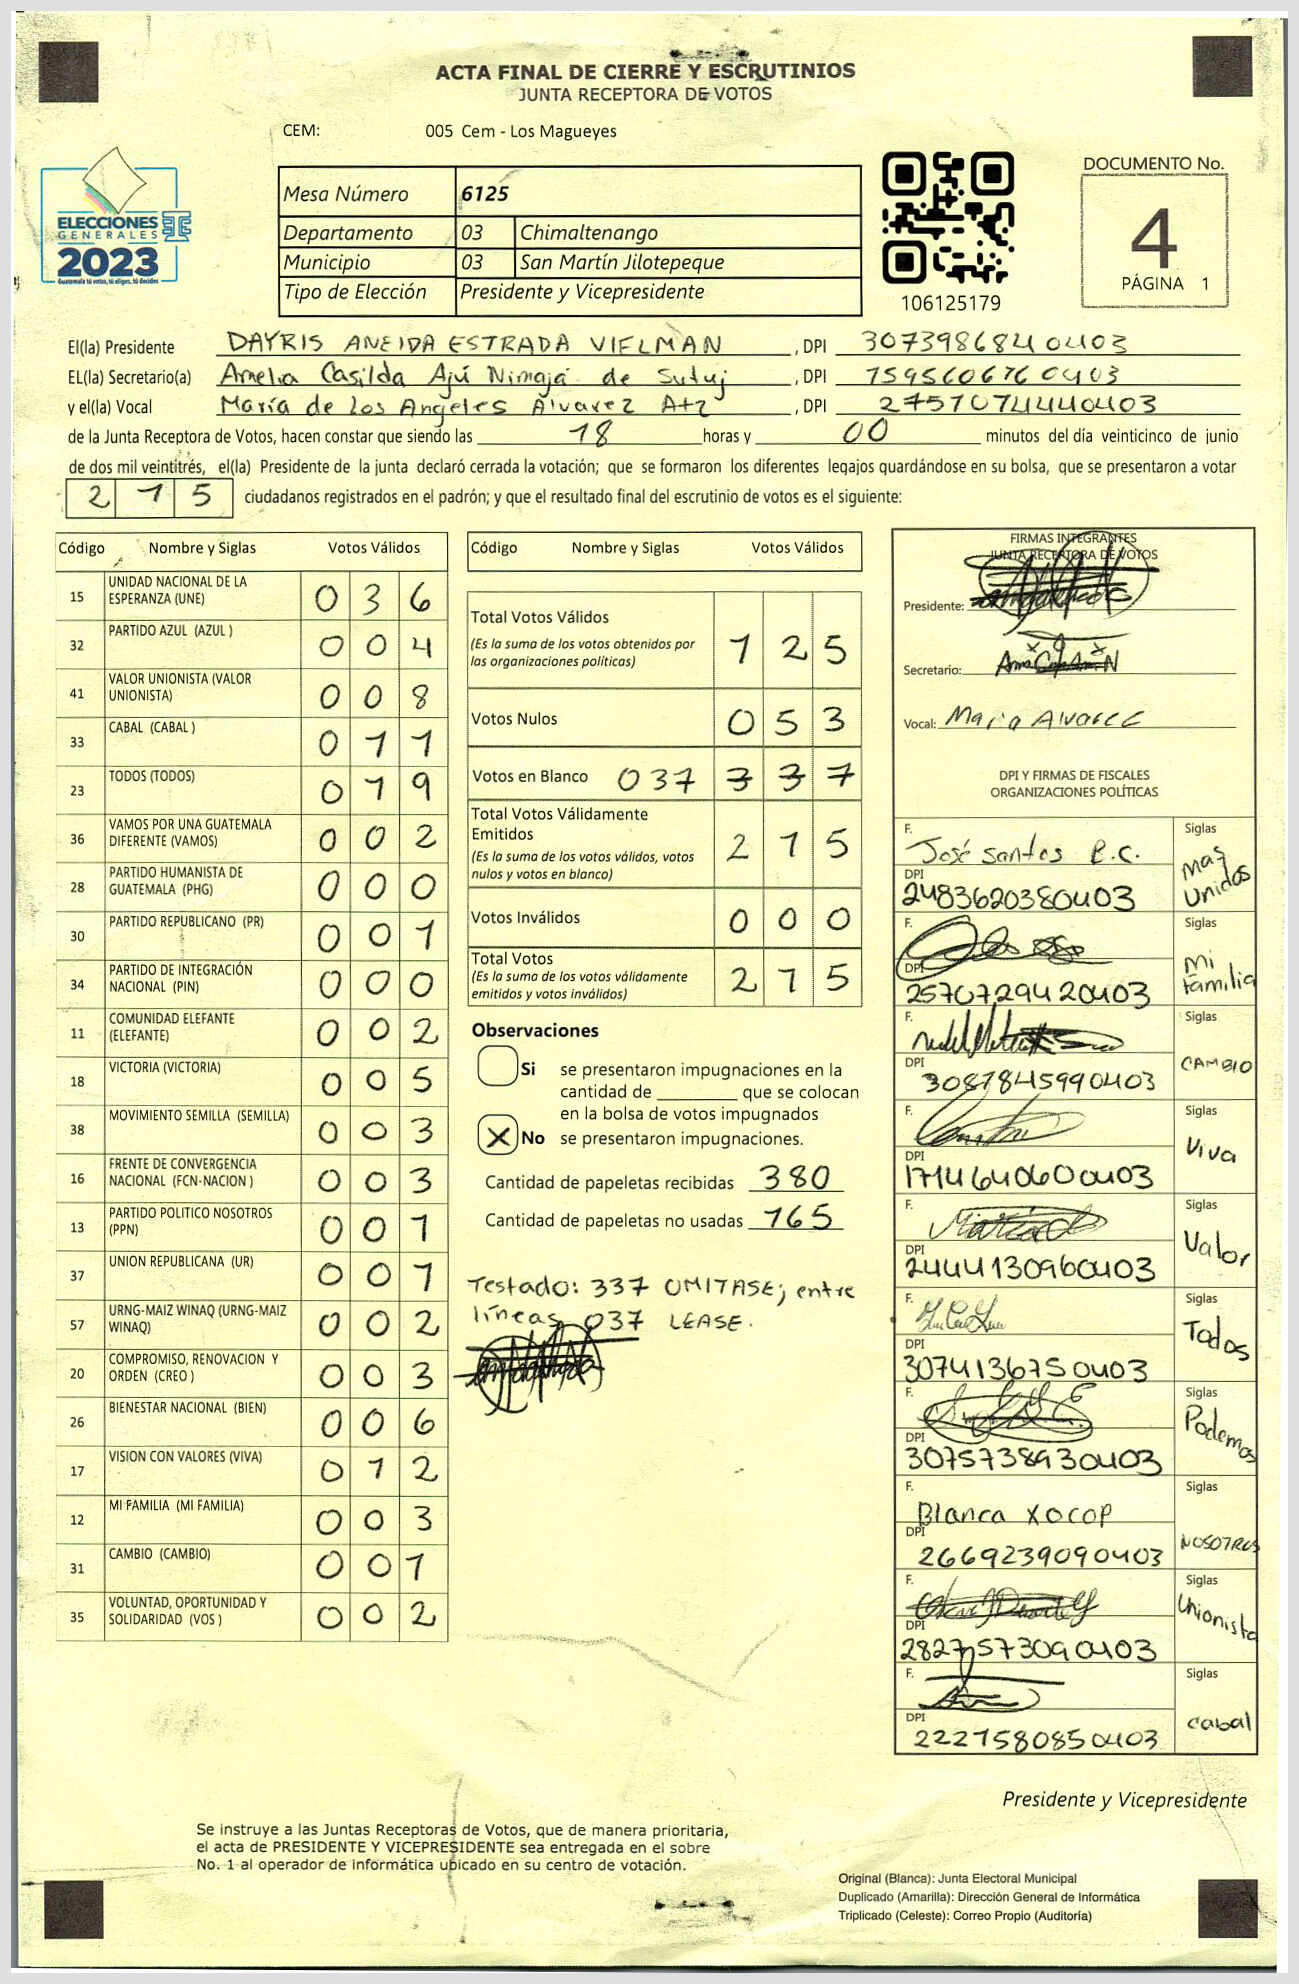 ACTA FINAL DE CIERRE Y ESCRUTINIOS
JUNTA RECEPTORA DE VOTOS
CEM: 005 Cem - Los Magueyes
ELECCIONES
GENERALES
2023
Guatemala tú votas, tú eliges, tú decides
Mesa Número 6125
Departamento 03 Chimaltenango
Municipio 03 San Martín Jilotepeque
Tipo de Elección Presidente y Vicepresidente
106125179
DOCUMENTO No.
4
PÁGINA 1
El(la) Presidente DAYRIS ANEIDA ESTRADA VIELMAN, DPI 3073986840403
EL(la) Secretario(a) Amelia Casilda Ajú Nimajá de Sutuj, DPI 7595606760403
y el(la) Vocal María de Los Angeles Alvarez Atz, DPI 2757074440403
de la Junta Receptora de Votos, hacen constar que siendo las 18 horas y 00 minutos del día veinticinco de junio
de dos mil veintitrés, el(la) Presidente de la junta declaró cerrada la votación; que se formaron los diferentes legajos quardándose en su bolsa, que se presentaron a votar
215 ciudadanos registrados en el padrón; y que el resultado final del escrutinio de votos es el siguiente:
Código Nombre y Siglas Votos Válidos
15 UNIDAD NACIONAL DE LA ESPERANZA (UNE) 036
32 PARTIDO AZUL (AZUL ) 004
41 VALOR UNIONISTA (VALOR UNIONISTA) 008
33 CABAL (CABAL ) 011
23 TODOS (TODOS) 019
36 VAMOS POR UNA GUATEMALA DIFERENTE (VAMOS) 002
28 PARTIDO HUMANISTA DE GUATEMALA (PHG) 000
30 PARTIDO REPUBLICANO (PR) 001
34 PARTIDO DE INTEGRACIÓN NACIONAL (PIN) 000
11 COMUNIDAD ELEFANTE (ELEFANTE) 002
18 VICTORIA (VICTORIA) 005
38 MOVIMIENTO SEMILLA (SEMILLA) 003
16 FRENTE DE CONVERGENCIA NACIONAL (FCN-NACION ) 003
13 PARTIDO POLITICO NOSOTROS (PPN) 001
37 UNION REPUBLICANA (UR) 001
57 URNG-MAIZ WINAQ (URNG-MAIZ WINAQ) 002
20 COMPROMISO, RENOVACION Y ORDEN (CREO ) 003
26 BIENESTAR NACIONAL (BIEN) 006
17 VISION CON VALORES (VIVA) 012
12 MI FAMILIA (MI FAMILIA) 003
31 CAMBIO (CAMBIO) 001
35 VOLUNTAD, OPORTUNIDAD Y SOLIDARIDAD (VOS ) 002
Código Nombre y Siglas Votos Válidos
Total Votos Válidos
(Es la suma de los votos obtenidos por las organizaciones políticas) 125
Votos Nulos 053
Votos en Blanco 037 337
Total Votos Válidamente Emitidos
(Es la suma de los votos válidos, votos nulos y votos en blanco) 215
Votos Inválidos 000
Total Votos
(Es la suma de los votos válidamente emitidos y votos inválidos) 215
Observaciones
Si se presentaron impugnaciones en la
cantidad de ________ que se colocan
en la bolsa de votos impugnados
X No se presentaron impugnaciones.
Cantidad de papeletas recibidas 380
Cantidad de papeletas no usadas 165
Testado: 337 OMITASE; entre
líneas 037 LEASE.
FIRMAS INTEGRANTES
JUNTA RECEPTORA DE VOTOS
Presidente:
Secretario:
Vocal: Maria Alvarez
DPI Y FIRMAS DE FISCALES
ORGANIZACIONES POLÍTICAS
F. José Santos B.C. Siglas Mas Unidos
DPI 2483620380403
F. Siglas Mi familia
DPI 2570729420403
F. Siglas CAMBIO
DPI 3087845990403
F. Siglas Viva
DPI 1714640600403
F. Siglas Valor
DPI 2444130960403
F. Siglas Todos
DPI 3074136750403
F. Siglas Podemos
DPI 3075738930403
F. Blanca XOCOP Siglas NOSOTROS
DPI 2669239090403
F. Siglas Unionista
DPI 2827573090403
F. Siglas Cabal
DPI 2227580850403
Presidente y Vicepresidente
Se instruye a las Juntas Receptoras de Votos, que de manera prioritaria,
el acta de PRESIDENTE Y VICEPRESIDENTE sea entregada en el sobre
No. 1 al operador de informática ubicado en su centro de votación.
Original (Blanca): Junta Electoral Municipal
Duplicado (Amarilla): Dirección General de Informática
Triplicado (Celeste): Correo Propio (Auditoría)